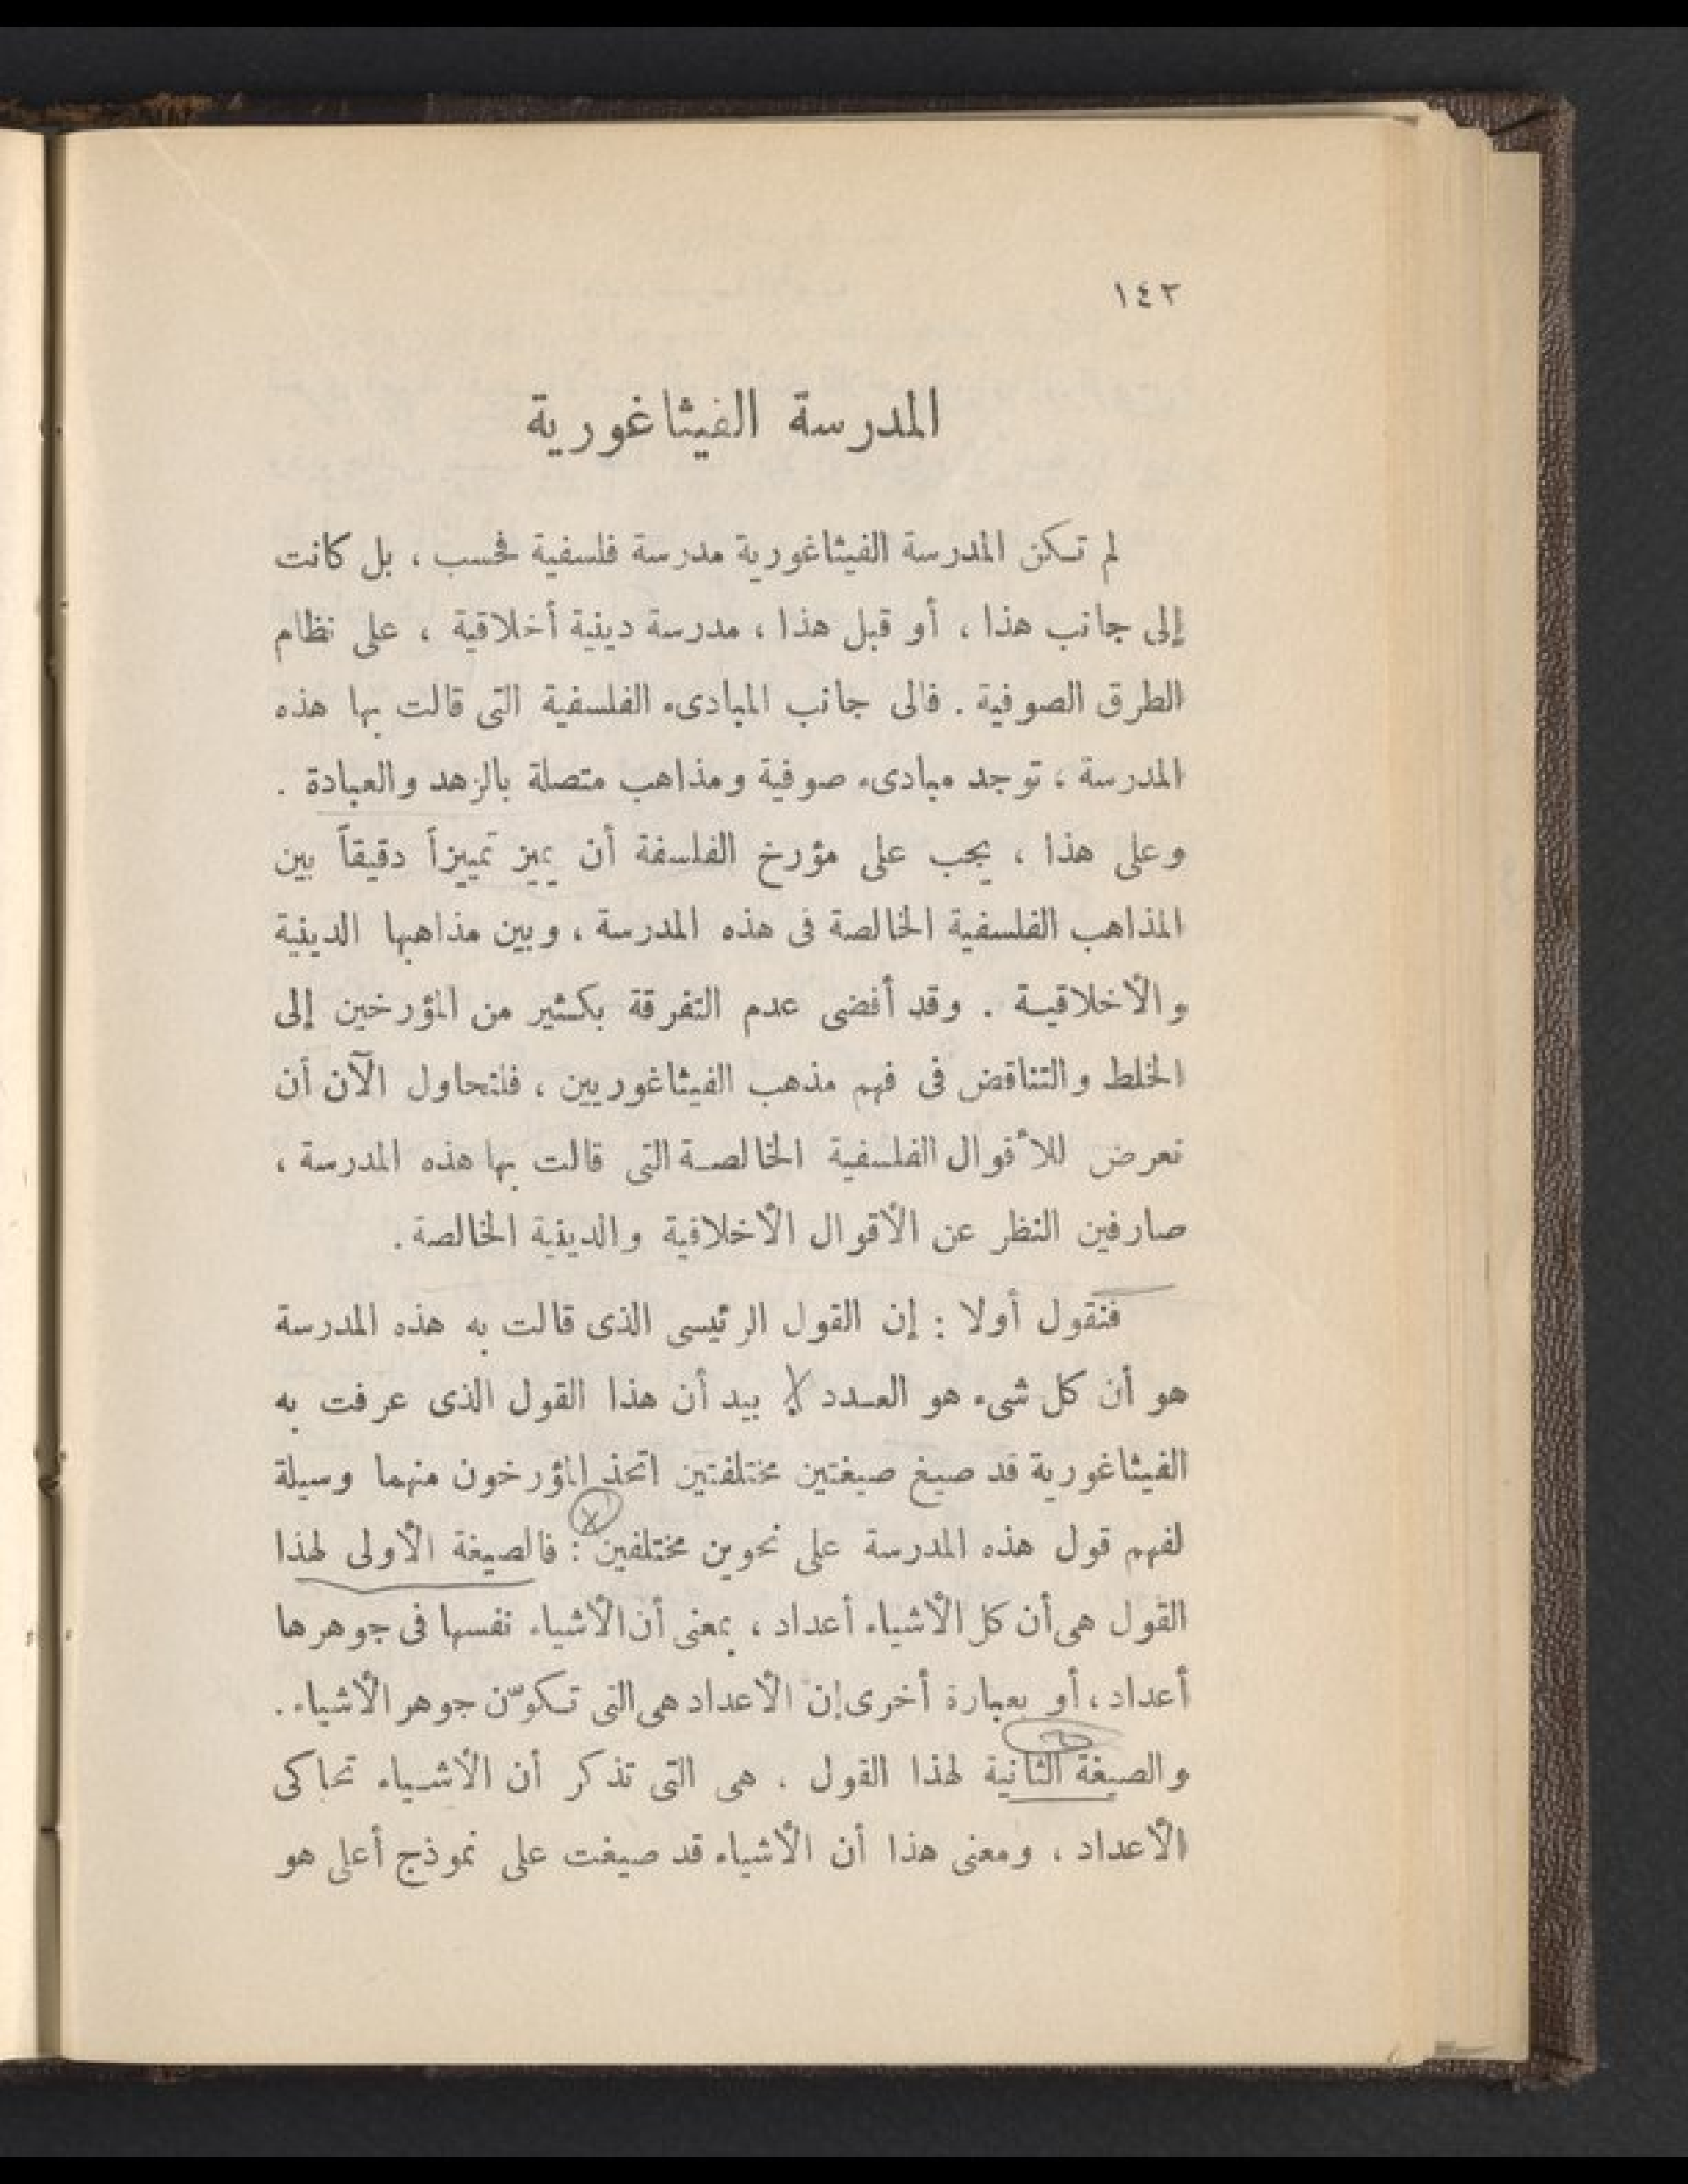 ١٤٢
المدرسة الفيثاغورية
لم تكن المدرسة الفيثاغورية مدرسة فلسفية فحسب ، بل كانت
إلى جانب هذا ، أو قبل هذا ، مدرسة دينية أخلاقية ، على نظام
الطرق الصوفية . فالى جانب المبادىء الفلسفية التى قالت بها هذه
المدرسة ، توجد مبادىء صوفية ومذاهب متصلة بالزهد والعبادة .
وعلى هذا ، يجب على مؤرخ الفلسفة أن يميز تمييزاً دقيقاً بين
المذاهب الفلسفية الخالصة فى هذه المدرسة ، وبين مذاهبها الدينية
والأخلاقية . وقد أفضى عدم التفرقة بكثير من المؤرخين إلى
الخلط والتناقض فى فهم مذهب الفيثاغوريين ، فلنحاول الآن أن
نعرض للأقوال الفلسفية الخالصة التى قالت بها هذه المدرسة ،
صارفين النظر عن الأقوال الأخلاقية والدينية الخالصة .
فنقول أولا : إن القول الرئيسى الذى قالت به هذه المدرسة
هو أن كل شىء هو العدد بيد أن هذا القول الذى عرفت به
الفيثاغورية قد صيغ صيغتين مختلفتين اتخذ المؤرخون منهما وسيلة
لفهم قول هذه المدرسة على نحوين مختلفين : فالصيغة الأولى لهذا
القول هى أن كل الأشياء أعداد ، بمعنى أن الأشياء نفسها فى جوهرها
أعداد ، أو بعبارة أخرى إن الأعداد هى التى تكوّن جوهر الأشياء .
والصيغة الثانية لهذا القول ، هى التى تذكر أن الأشياء تحاكى
الأعداد ، ومعنى هذا أن الأشياء قد صيغت على نموذج أعلى هو